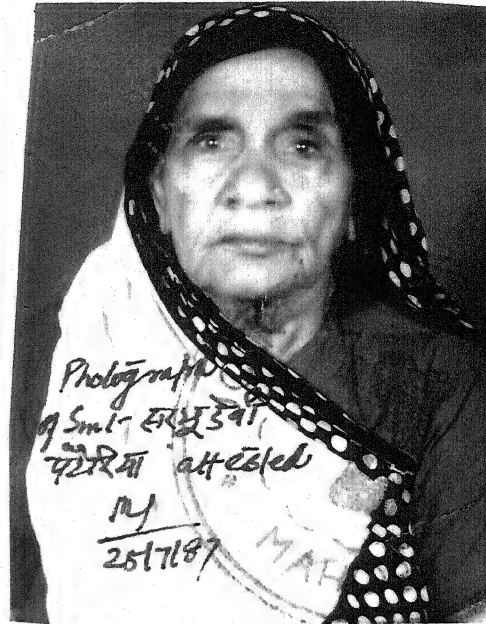 Photograph
of Smt- सरभू देवी
पटेरिया attested
25/7/87
MAH